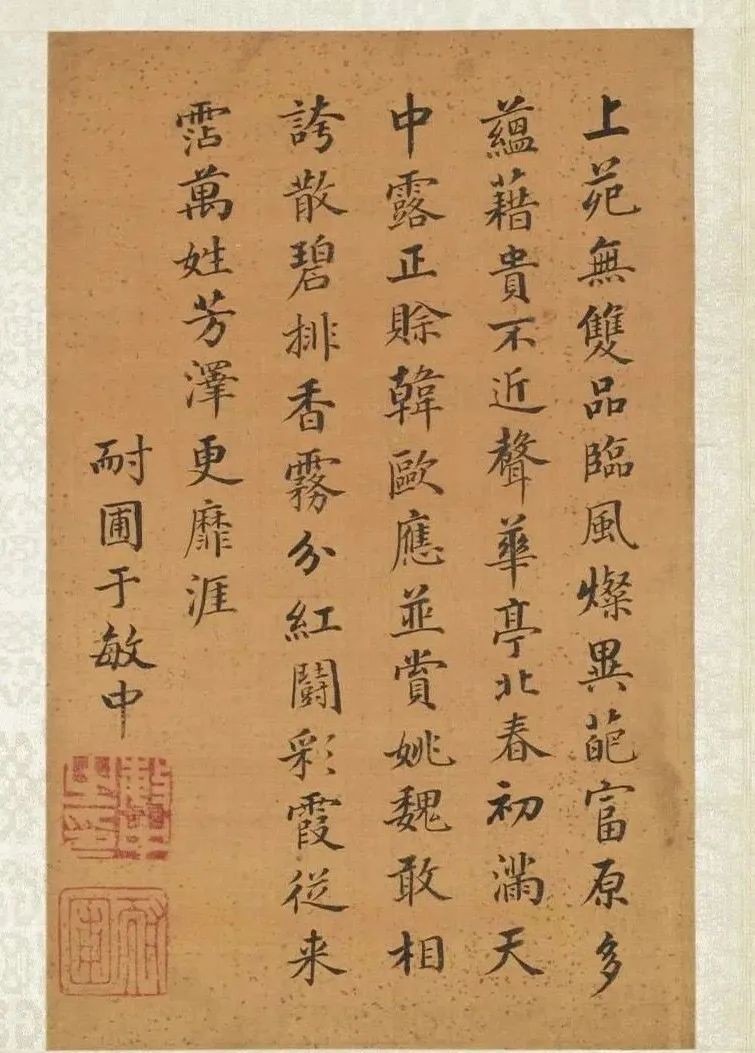 上苑無雙品臨風燦異葩富原多
蘊藉貴不近聲華亭北春初滿天
中露正賒韓歐應並賞姚魏敢相
誇散碧排香霧分紅鬪彩霞從来
霑萬姓芳澤更靡涯
耐圃于敏中
耐圃